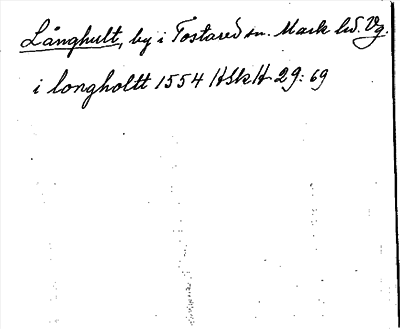 Långhult, by i Tostared sn. Mark hd. Vg.
i longholtt 1554 HSkH 29: 69